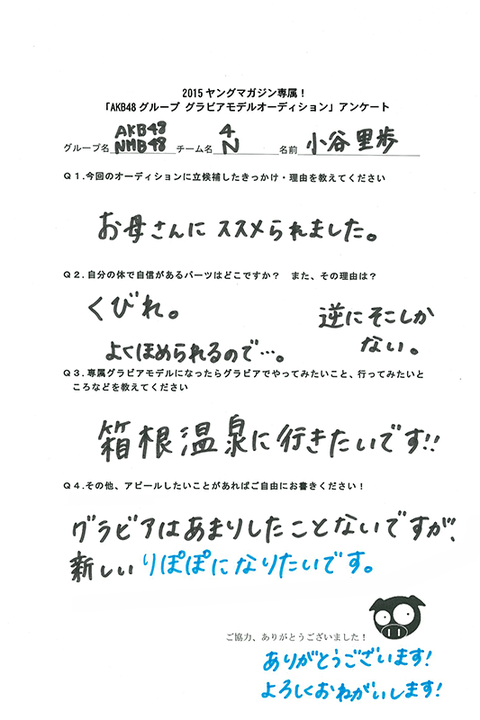 2015 ヤングマガジン専属!
「AKB48 グループ グラビアモデルオーディション」アンケート
グループ名 AKB48 NMB48 チーム名 4 N 名前 小谷里歩
Q1.今回のオーディションに立候補したきっかけ・理由を教えてください
お母さんに ススメられました。
Q2.自分の体で自信があるパーツはどこですか? また、その理由は?
くびれ。
逆にそこしか
ない。
よくほめられるので…。
Q3.専属グラビアモデルになったらグラビアでやってみたいこと、行ってみたいと
ころなどを教えてください
箱根温泉に行きたいです!!
Q4.その他、アピールしたいことがあればご自由にお書きください!
グラビアはあまりしたことないですが、
新しいりぽぽになりたいです。
ご協力、ありがとうございました!
ありがとうございます!
よろしくおねがいします!